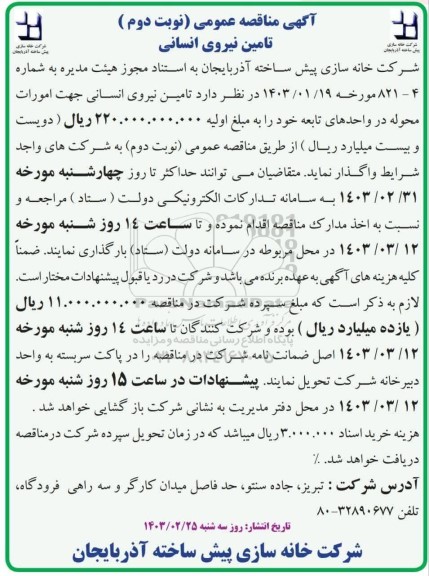 آگهی مناقصه عمومی (نوبت دوم )
تامین نیروی انسانی
شرکت خانه سازی
پیش ساخته آذربایجان
شرکت خانه سازی
پیش ساخته آذربایجان
شرکت خانه سازی پیش ساخته آذربایجان به استناد مجوز هیئت مدیره به شماره
۴ - ۸۲۱ مورخه ۱۴۰۳/۰۱/۱۹ در نظر دارد تامین نیروی انسانی جهت امورات
محوله در واحدهای تابعه خود را به مبلغ اولیه ۲۲۰.۰۰۰.۰۰۰.۰۰۰ ریال ( دویست
و بیست میلیارد ریال ) از طریق مناقصه عمومی (نوبت دوم) به شرکت های واجد
شرایط واگذار نماید. متقاضیان می توانند حداکثر تا روز چهارشنبه مورخه
۱۴۰۳/۰۲/۳۱ به سامانه تدارکات الکترونیکی دولت ( ستاد ) مراجعه و
نسبت به اخذ مدارک مناقصه اقدام نموده و تا ساعت ۱۴ روز شنبه مورخه
۱۴۰۳/۰۳/۱۲ در محل مربوطه در سامانه دولت (ستاد) بارگذاری نمایند. ضمناً
کلیه هزینه های آگهی به عهده برنده می باشد و شرکت در رد یا قبول پیشنهادات مختار است.
لازم به ذکر است که مبلغ سپرده شرکت در مناقصه ۱۱.۰۰۰.۰۰۰.۰۰۰ ریال
( یازده میلیارد ریال ) بوده و شرکت کنندگان تا ساعت ۱۴ روز شنبه مورخه
۱۴۰۳/۰۳/۱۲ اصل ضمانت نامه شرکت در مناقصه را در پاکت سربسته به واحد
دبیرخانه شرکت تحویل نمایند. پیشنهادات در ساعت ۱۵ روز شنبه مورخه
۱۴۰۳/۰۳/۱۲ در محل دفتر مدیریت به نشانی شرکت باز گشایی خواهد شد .
هزینه خرید اسناد ۳.۰۰۰.۰۰۰ ریال میباشد که در زمان تحویل سپرده شرکت در مناقصه
دریافت خواهد شد. ٪
آدرس شرکت : تبریز، جاده سنتو، حد فاصل میدان کارگر و سه راهی فرودگاه،
تلفن ۳۲۸۹۰۶۷۷-۸۰
تاریخ انتشار: روز سه شنبه ۱۴۰۳/۰۲/۲۵
شرکت خانه سازی پیش ساخته آذربایجان